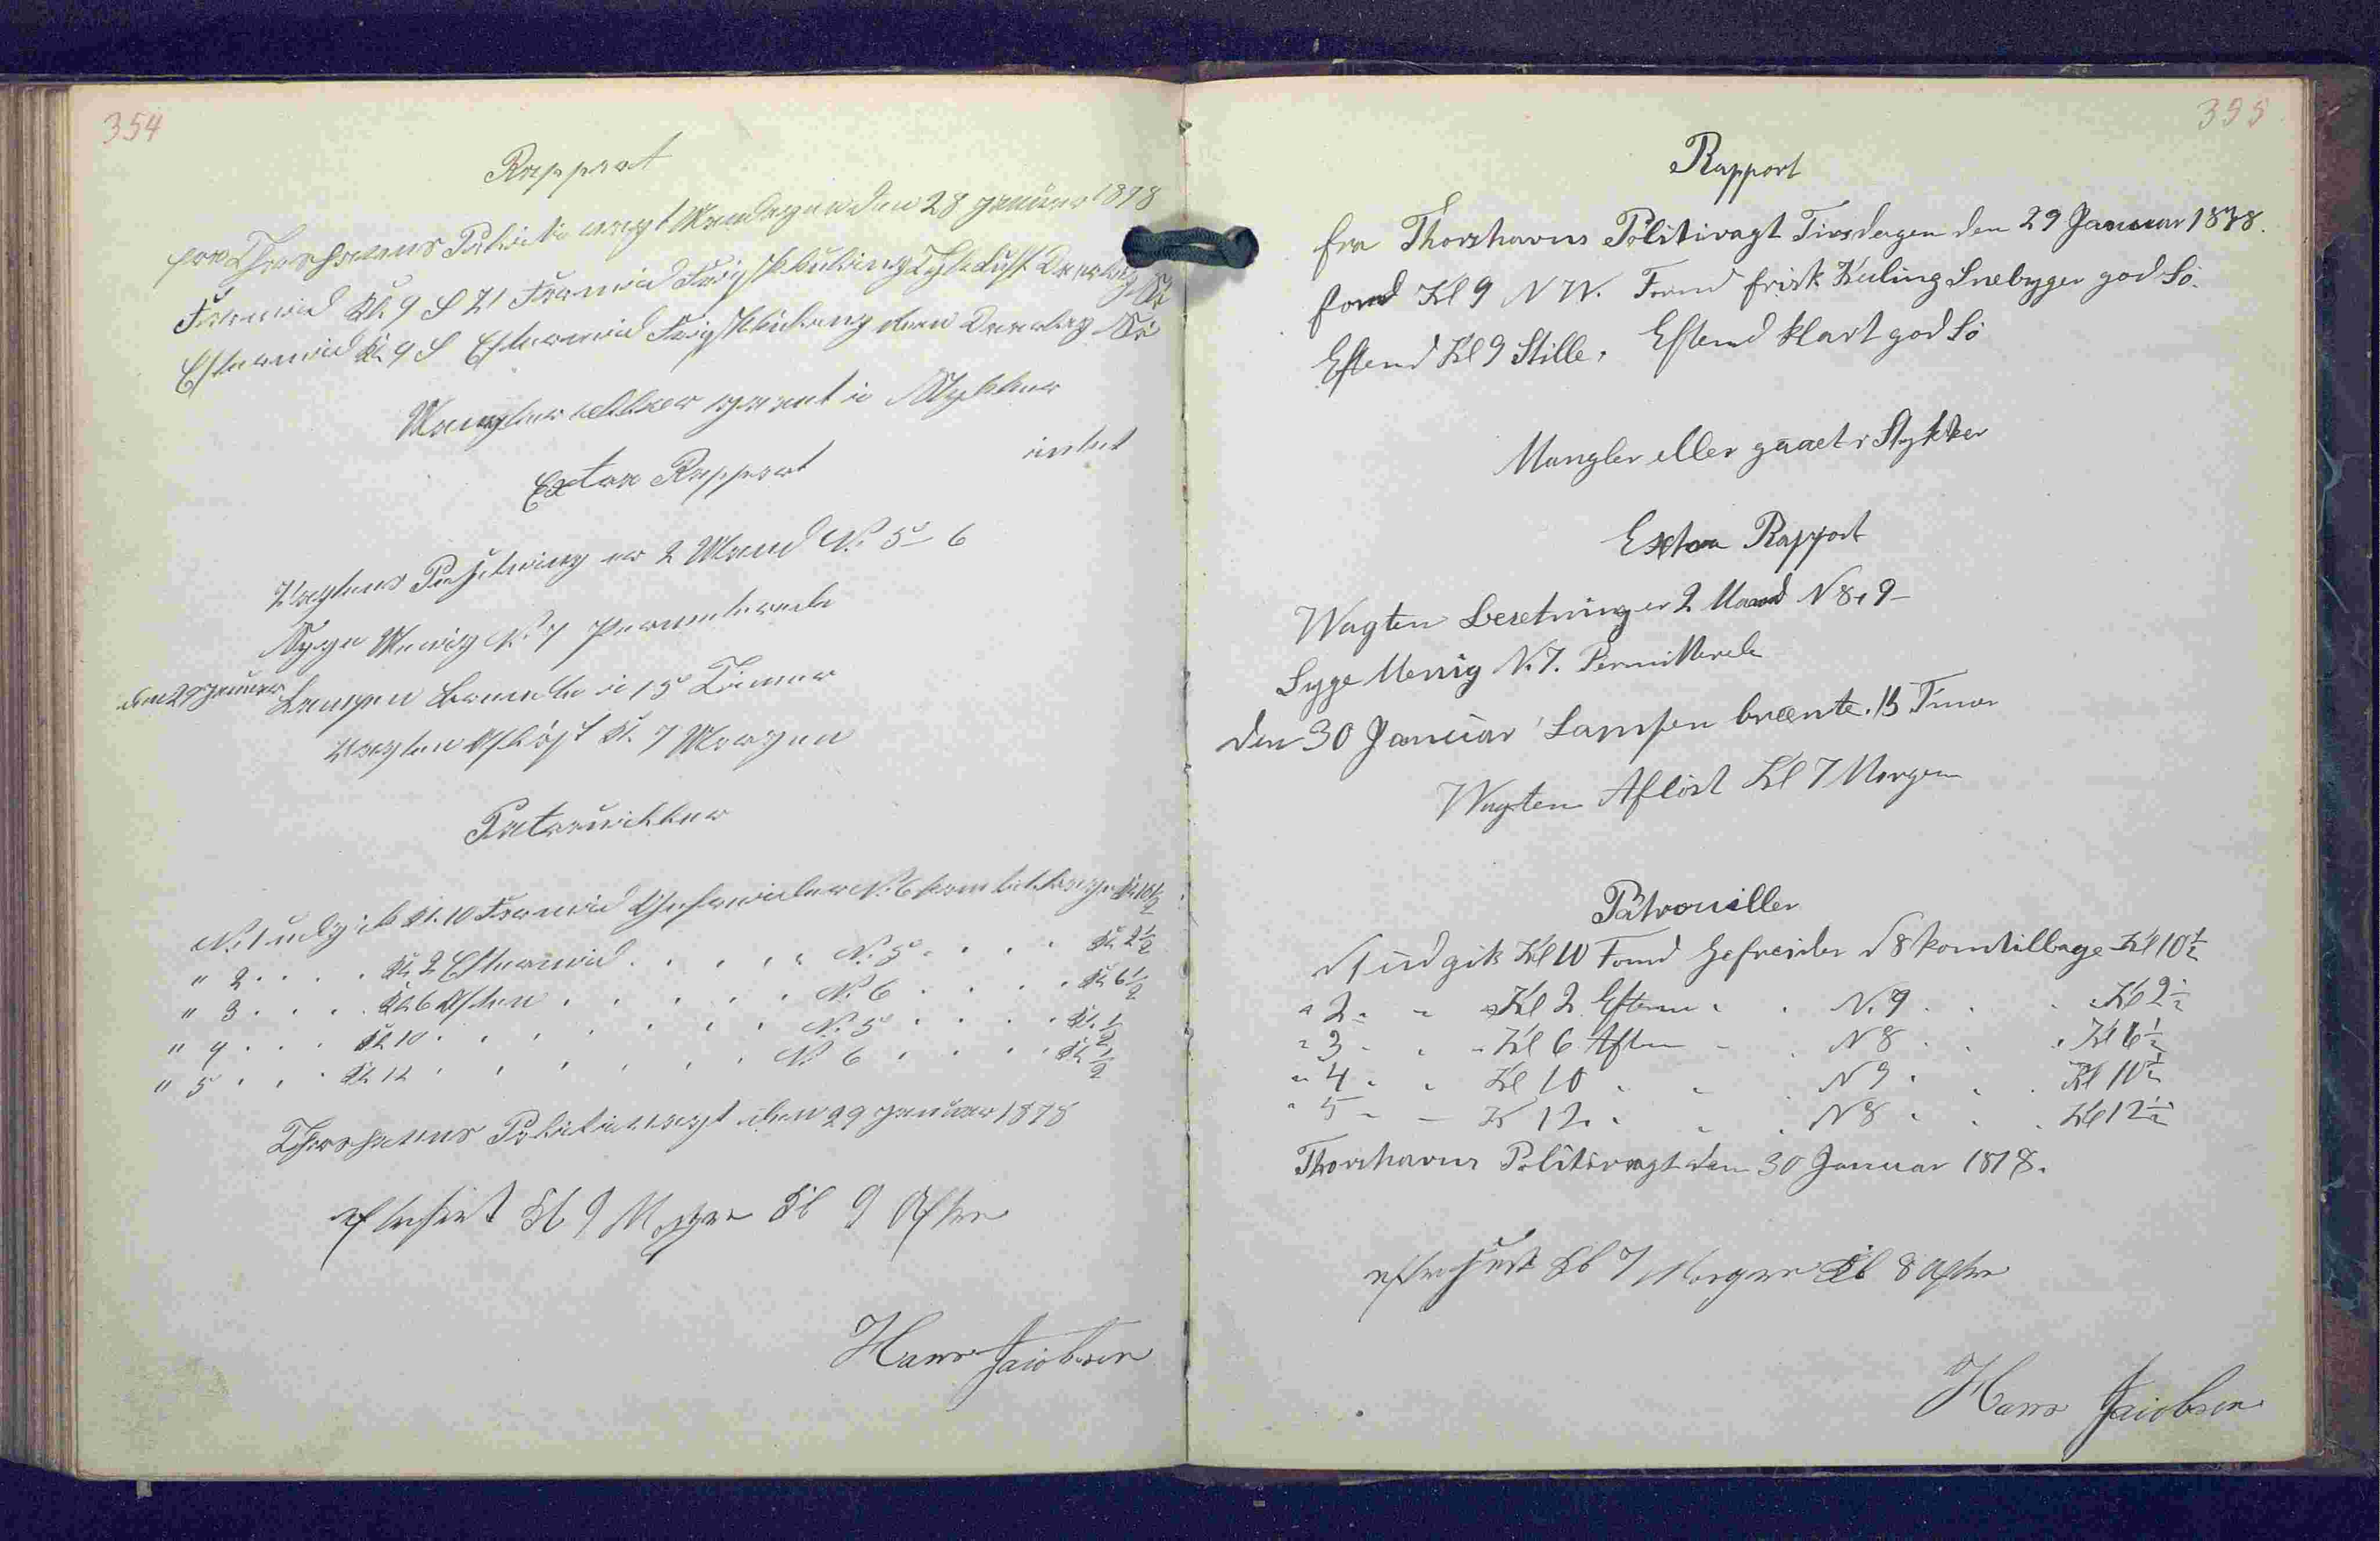 354
Rapport
fra Thorshavns Politivagt Mandagen den 28 Januar 1878
Formid Kl. 9 S V Formid Frisk Kuling Tyk Luft Oprørt Sø
Eftermid Kl. 9 S Eftermid Frisk Kuling Sø
Mangler eller gaaet i Stykker
intet
Extra Rapport
Vagtens Besetning er 2 Mand N. 5 - 6
Syge Menig N. 7 Permiterede
den 29 Januar Lampen brændte i 15 Timer
Vagten Afløst Kl. 7 Morgen
Patrouiller
N. 1 udgik Kl. 10 Formid Gefreider N. 6 kom tilbage Kl. 10½
" 2 . . . . Kl. 2 Eftermid . . . . . N. 5 . . . . Kl. 2½
" 3 . . . . Kl. 6 Aften . . . . . N. 6 . . . . Kl. 6½
" 4 . . . Kl. 10 . . . . . . N. 5 . . . . Kl. ½
" 5 . . . Kl. 12 . . . . . . N. 6 . . . . Kl. ½
Thorshavns Politivagt den 29 Januar 1878
efterseet Kl 9 Morgen Kl 9 Aften
Hans Jacobsen
355
Rapport
fra Thorshavns Politivagt Tirsdagen den 29 Januar 1878.
Formd Kl 9 N W. Formd frisk Kuling Snebyger god Sö.
Eftemd Kl 9 Stille. Eftemd klart god Sö
Mangler eller gaaet i Stykker
Extra Rapport
Wagten Besetning er 2 Mand N 8 . 9 -
Sygge Menig N. 7. Permitterede
den 30 Januar Lampen brænte . 15 Timer
Wagten Afløst Kl 7 Morgen
Patrouiller
N 1 udgik Kl 10 Formd Gefreider N 8 kom tilbage Kl 10½
" 2 - - Kl 2 Efterm . . N. 9 . . . Kl 2½
" 3 - . - Kl 6 Aften - . N 8 . . . Kl 6½
" 4 . . Kl 10 . . . N 9 . . . Kl 10½
" 5 - - K 12 . . . N 8 . . . Kl 12½
Thorshavns Politivagt den 30 Januar 1878.
efterseet Kl 7 Morgen Kl 8 Aften
Hans Jacobsen